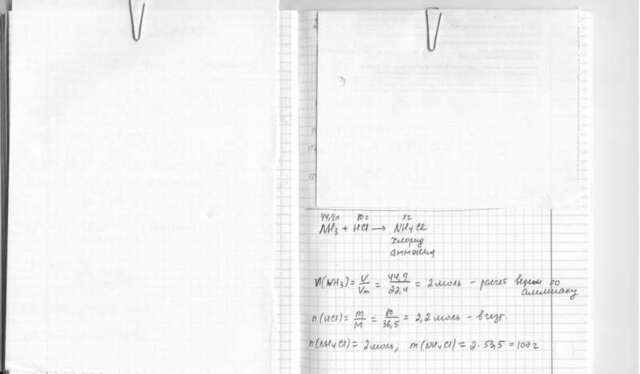 3)
44,8л 80г xг
NH₃ + HCl ⟶ NH₄Cl
хлорид
аммония
n(NH₃) = V/Vm = 44,8/22,4 = 2 моль – расчёт ведём по
аммиаку
n(HCl) = m/M = 80/36,5 = 2,2 моль – в изб.
n(NH₄Cl) = 2 моль, m(NH₄Cl) = 2·53,5 = 107 г